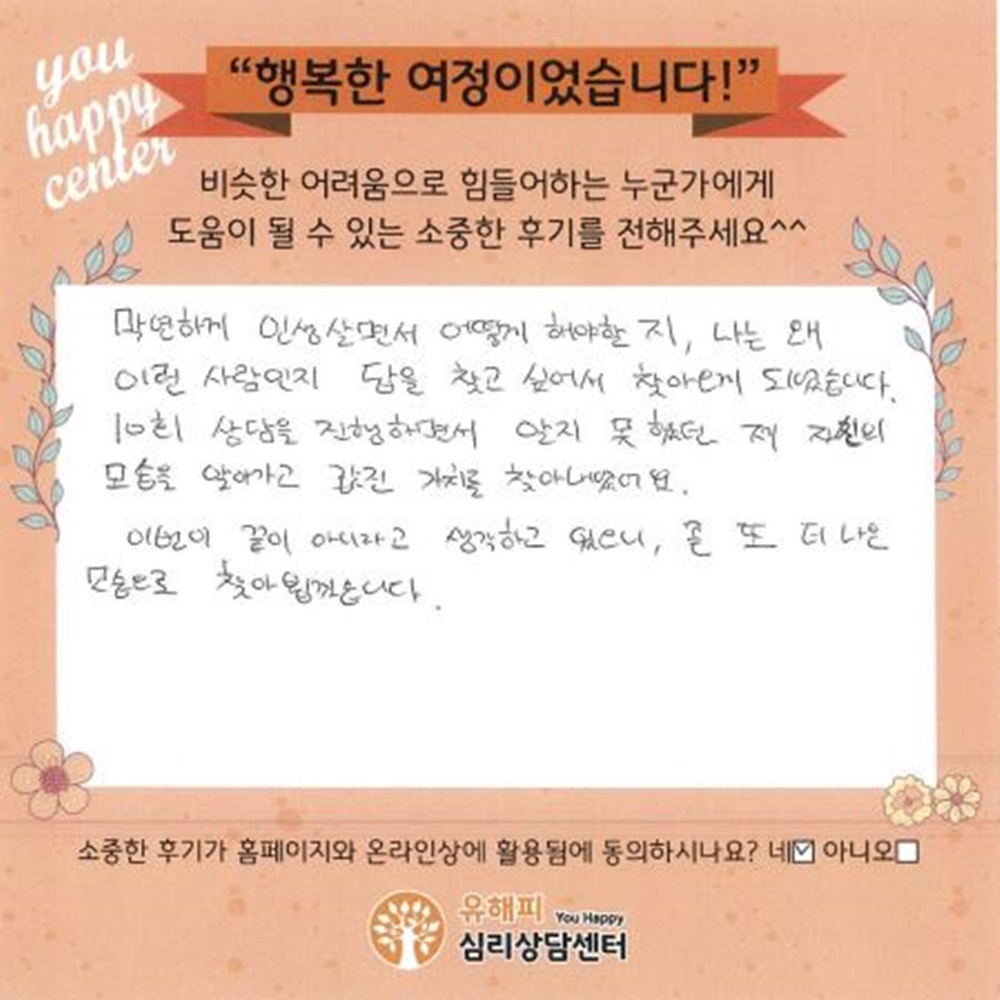 you
happy
center
“행복한 여정이었습니다!”
비슷한 어려움으로 힘들어하는 누군가에게
도움이 될 수 있는 소중한 후기를 전해주세요^^
막연하게 인생살면서 어떻게 해야할 지, 나는 왜
이런 사람인지 답을 찾고 싶어서 찾아오게 되었습니다.
10회 상담을 진행하면서 알지 못했던 제 자신의
모습을 알아가고 값진 가치를 찾아내었어요.
이번이 끝이 아니라고 생각하고 있으니, 좀 또 더 나은
모습으로 찾아뵙겠습니다.
소중한 후기가 홈페이지와 온라인상에 활용됨에 동의하시나요? 네☑ 아니오☐
유해피 You Happy
심리상담센터